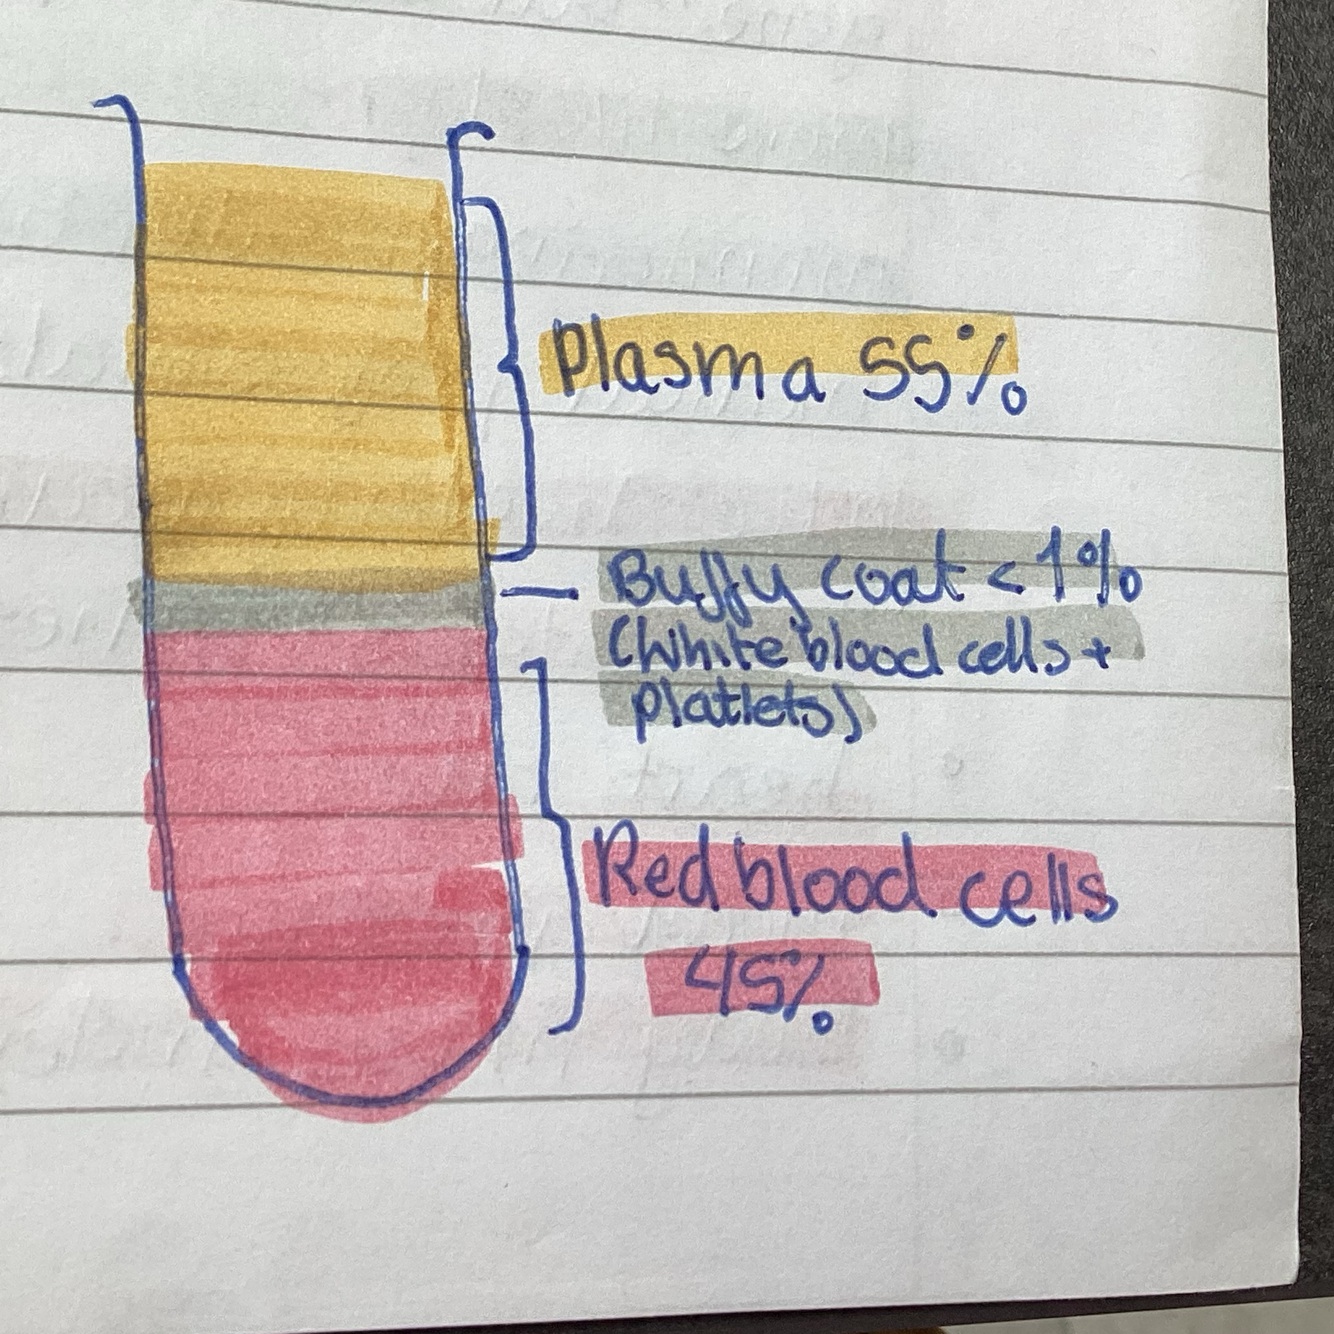 Plasma 55%
Buffy coat < 1%
(White blood cells +
platlets)
Red blood cells
45%